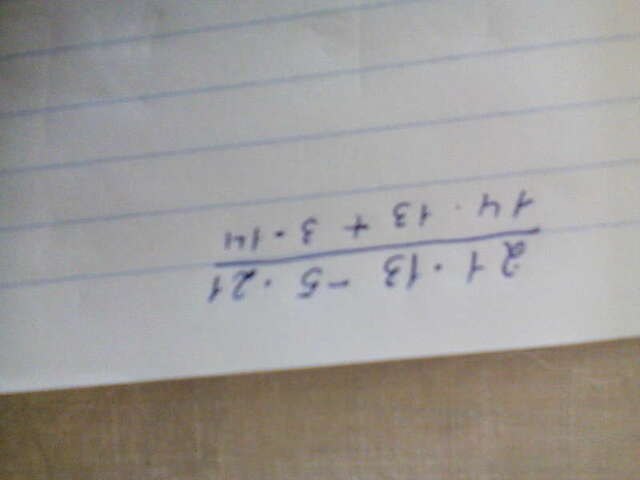 21 · 13 - 5 · 21
14 · 13 + 3 · 14